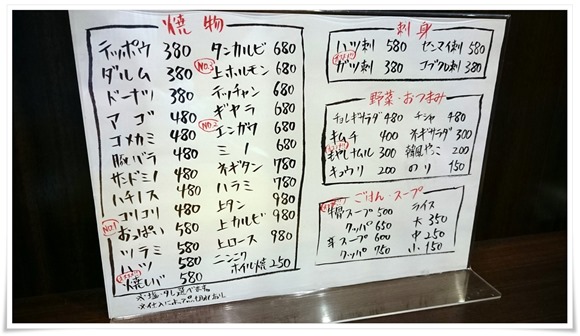 焼物
テッポウ 380
ダルム 380
ドーナツ 380
アゴ 480
コメカミ 480
豚バラ 480
サンドミノ 480
ハチノス 480
コリコリ 480
No.1 おっぱい 580
ツラミ 580
ハツ 580
焼レバ 580
タンカルビ 680
No.3 上ホルモン 680
テッチャン 680
ギヤラ 680
No.2 エンガワ 680
ミノ 680
ネギタン 780
ハラミ 780
上タン 980
上カルビ 980
上ロース 980
ニンニク
ホイル焼 250
刺身
ハツ刺 580
ガツ刺 380
センマイ刺 580
コブクロ刺 380
野菜・おつまみ
チョレギサラダ 480
キムチ 400
もやしナムル 300
キュウリ 200
チシャ 480
ネギサラダ 300
韓国やっこ 200
のり 150
ごはん・スープ
牛骨スープ 500
クッパ 650
辛スープ 600
クッパ 750
ライス
大 350
中 250
小 150